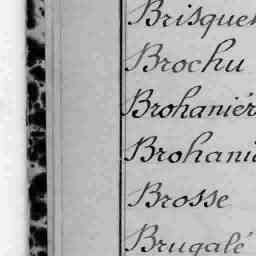 Brisque
Brochu
Brohanié
Brohani
Brosse
Brugalé